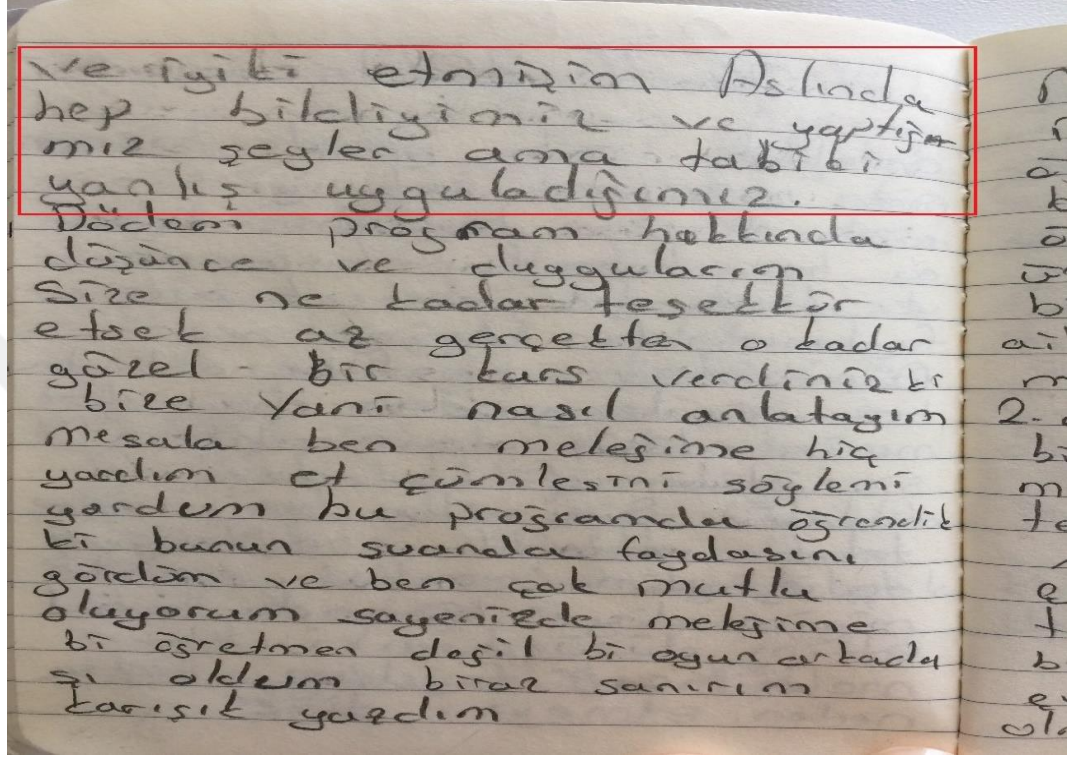 ve iyiki etmişim Aslında
hep bildiyimiz ve yaptığı
mız şeyler ama tabiki
yanlış uyguladığımız.
program hakkında
düşünce ve duygularım
Size ne kadar teşekkür
etsek az gerçekten o kadar
güzel bir kurs verdiniz ki
bize Yani nasıl anlatayım
mesala ben meleğime hiç
yardım et cümlesini söylemi
yordum bu programda öğrendik
ki bunun şuanda faydasını
gördüm ve ben çok mutlu
oluyorum sayenizde meleğime
bi öğretmen değil bi oyun arkada
şı oldum biraz sanırım
karışık yazdım
2.